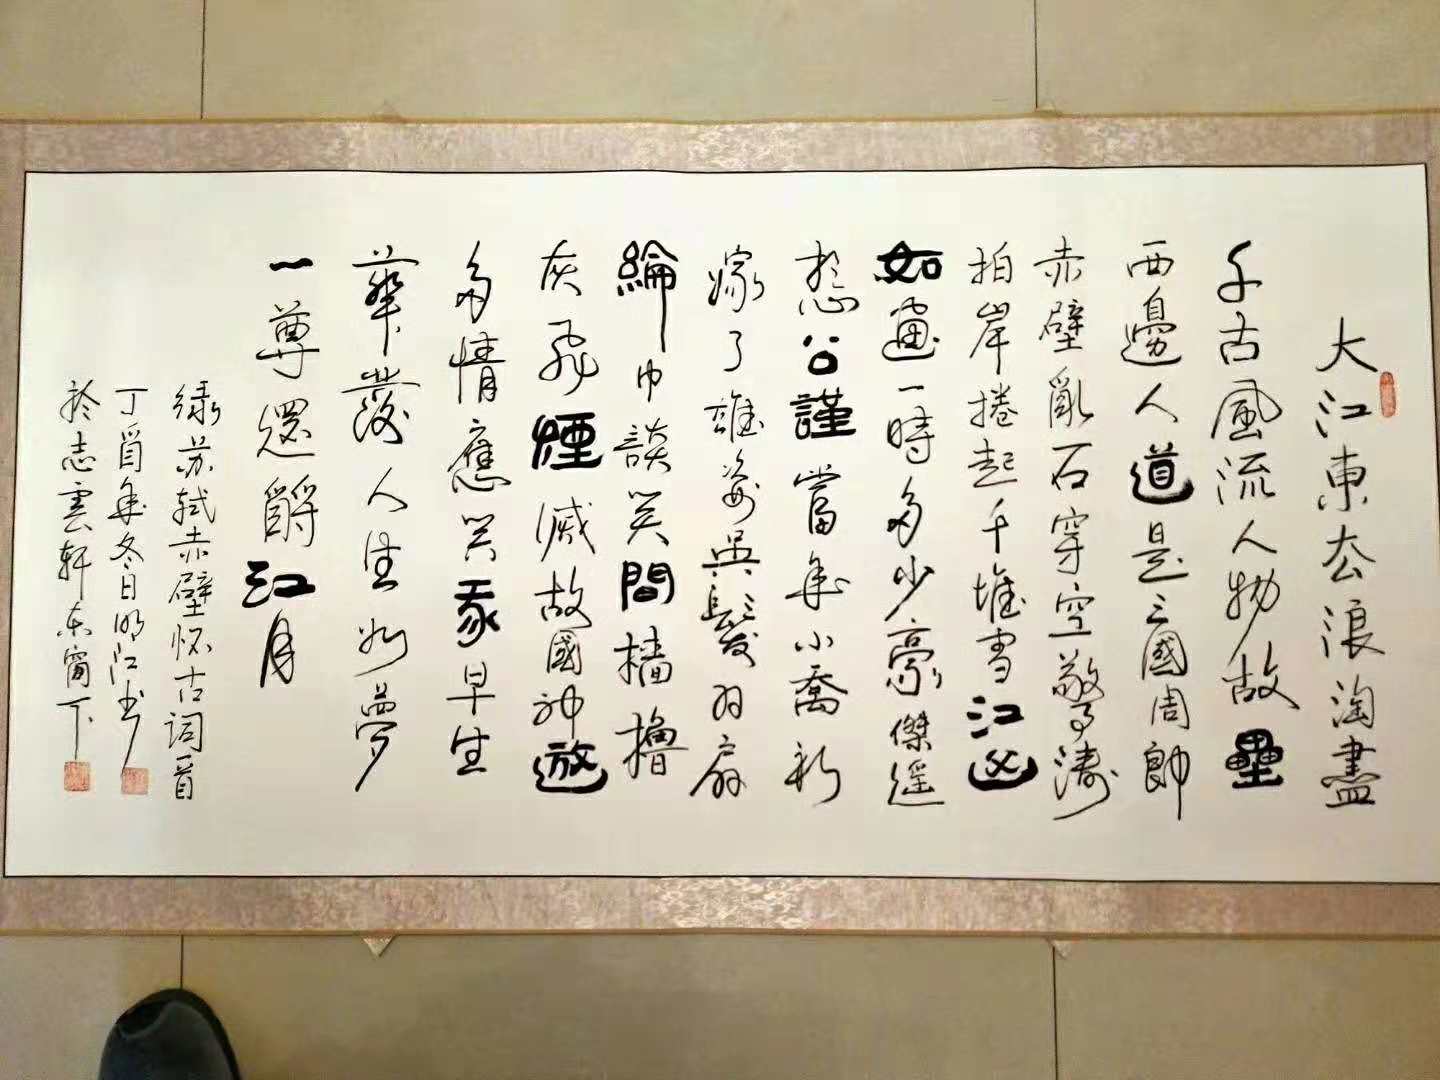 大江東去浪淘盡
千古風流人物故壘
西邊人道是三國周郎
赤壁亂石穿空驚濤
拍岸捲起千堆雪江山
如畫一時多少豪傑遥
想公謹當年小喬初
嫁了雄姿英發羽扇
綸巾談笑間檣櫓
灰飛煙滅故國神遊
多情應笑我早生
華發人生如夢
一尊還酹江月
錄蘇軾赤壁懷古詞一首
丁酉年冬日明江书
於志雲軒東窗下